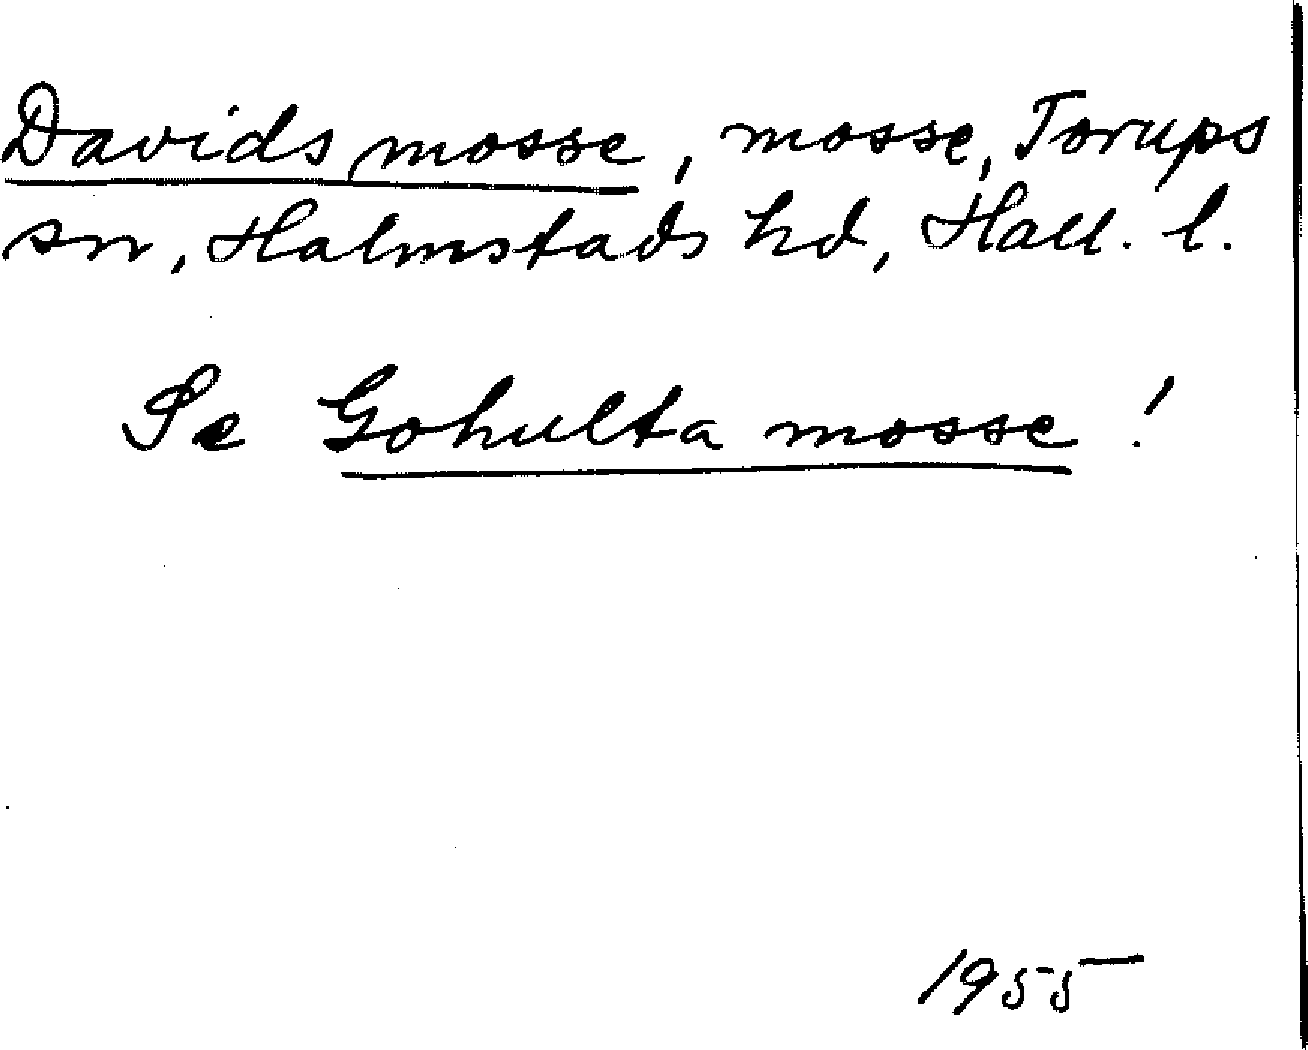 Davids mosse, mosse, Torups
sn, Halmstads hd, Hall. l.
Se Gohulta mosse!
1955